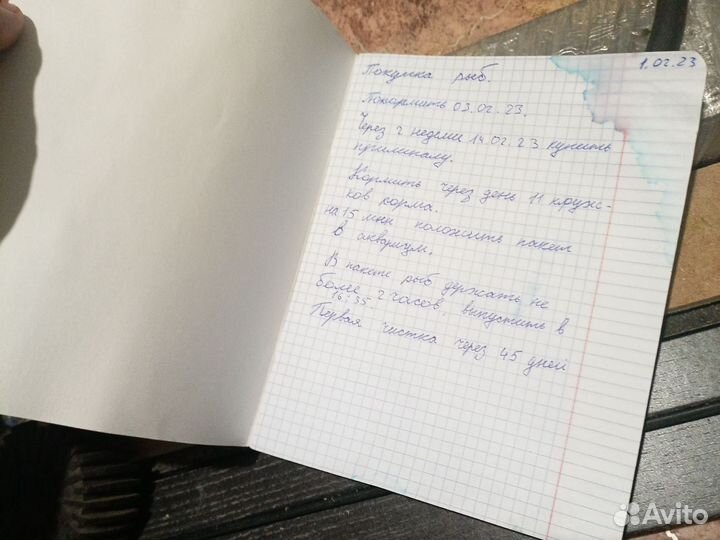 1.02.23
Покупка рыб.
Покормить 03.02.23.
Через 2 недели 14.02.23 купить
приманалу.
Кормить через день 11 круж-
ков корма.
на 15 мин положить пакет
в аквариум.
В пакете рыб держать не
более 2 часов, выпустить в
16:35
Первая чистка через 45 дней
Avito